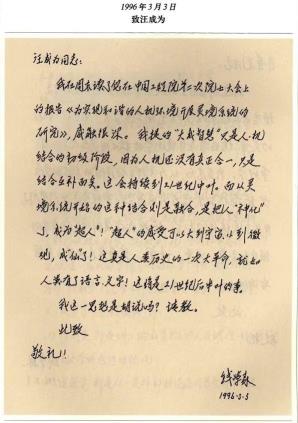 1996年3月3日
致汪成为
汪成为同志：
我在周末读了您在中国工程院第二次院士大会上
的报告《为实现和谐的人机环境开展灵境系统的
研究》，感触很深。我提的“大成智慧”只是人-机
结合的初级阶段，因为人机还没有真正合一，只是
结合互补而矣。这会持续到21世纪中叶。而从灵
境系统开始的这种结合则是融合，是把人“神化”
了，成为“超人”！“超人”的感受可以大到宇宙，小到微
观，成“仙”了！这真是人类历史的一次大革命，犹如
人类有了语言、文字！这将是21世纪后半叶的事。
我这一思想是胡说吗？请教。
此致
敬礼！
钱学森
1996.3.3